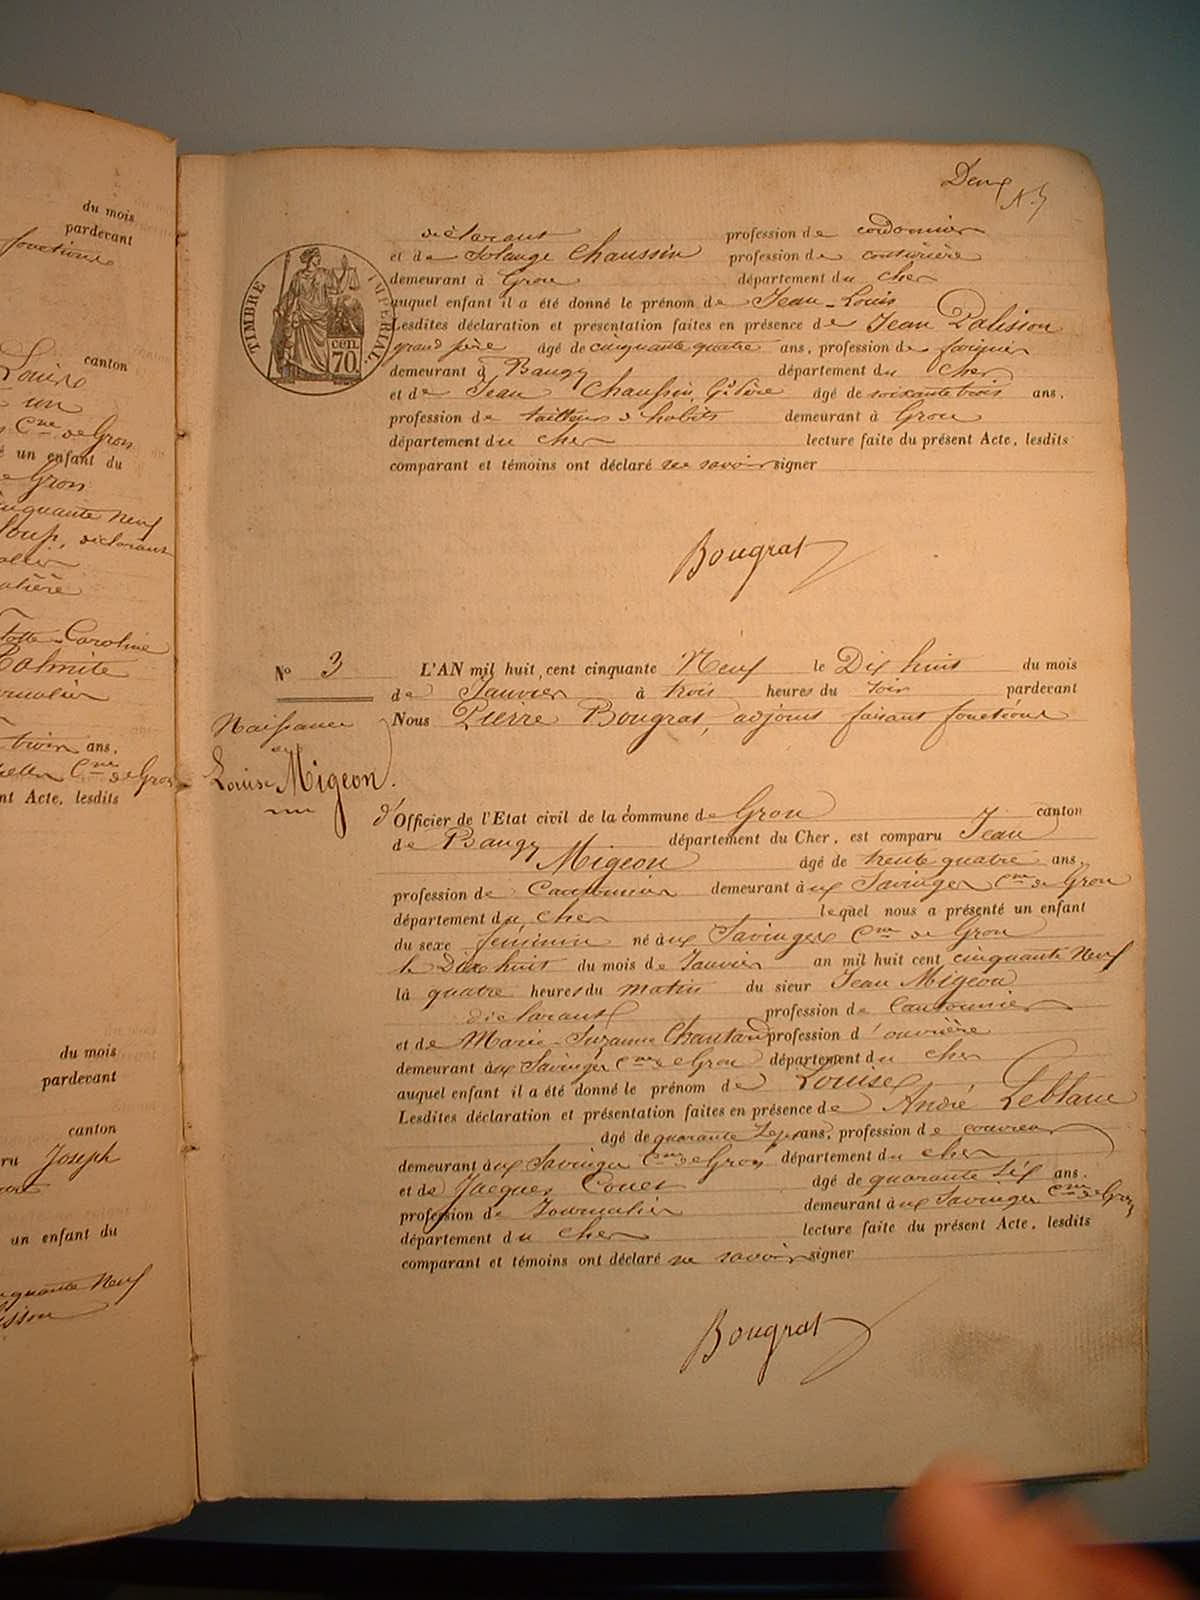 du mois
pardevant
fonctions
canton
Louise
un
Cne de Gron
un enfant du
Gron
cinquante Neuf
loup, déclarant
Caroline
Palmite
ans.
Cne de Gron
nt Acte, lesdits
du mois
pardevant
canton
ru Joseph
un enfant du
cinquante Neuf
Deux
déclarant profession de cordonnier
et de Solange Chaussin profession de couturière
TIMBRE IMPÉRIAL
cen. 70.
demeurant à Gron département du Cher
auquel enfant il a été donné le prénom de Jean-Louis
Lesdites déclaration et presentation faites en présence de Jean Palisson
grand père âgé de cinquante quatre ans, profession de
demeurant à Baugy département du Cher
et de Jean Chaussin, Gd Père âgé de soixante trois ans,
profession de tailleur d'habits demeurant à Gron
département du Cher lecture faite du présent Acte, lesdits
comparant et témoins ont déclaré ne savoir signer
Bougrat
No 3
L'AN mil huit cent cinquante Neuf le Dix huit du mois
de Janvier à trois heures du soir pardevant
Naissance
de
Louise Migeon.
Nous Pierre Bougrat, adjoint faisant fonctions
d'Officier de l'Etat civil de la commune de Gron canton
de Baugy département du Cher, est comparu Jean
Migeon âgé de trente quatre ans,
profession de Cantonnier demeurant aux Savinges Cne de Gron
département du Cher lequel nous a présenté un enfant
du sexe féminin né aux Savinges Cne de Gron
le Dix huit du mois de Janvier an mil huit cent cinquante Neuf
là quatre heures du matin du sieur Jean Migeon
déclarant profession de Cantonnier
et de Marie-Suzanne Chautard profession d'ouvrière
demeurant aux Savinges Cne de Gron département du Cher
auquel enfant il a été donné le prénom de Louise
Lesdites déclaration et présentation faites en présence de André Leblanc
âgé de quarante Sept ans, profession de couvreur
demeurant aux Savinges Cne de Gron département du Cher
et de Jacques Couet âgé de quarante Six ans.
profession de Journalier demeurant aux Savinges Cne de Gron
département du Cher lecture faite du présent Acte, lesdits
comparant et témoins ont déclaré ne savoir signer
Bougrat